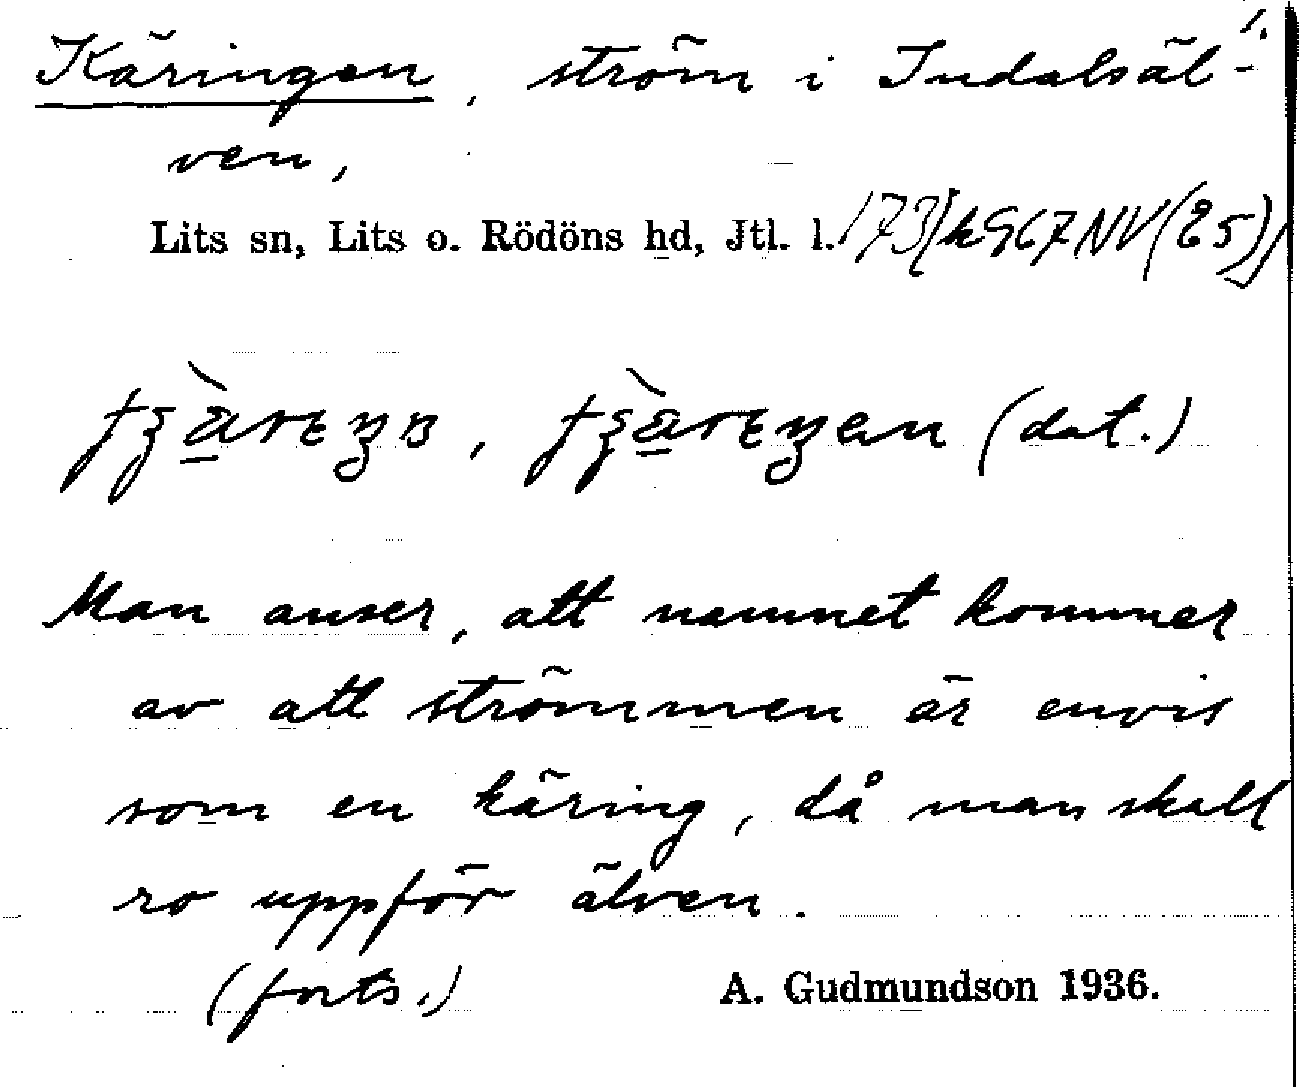 1.
Käringen, ström i Indalsäl-
ven,
Lits sn, Lits o. Rödöns hd, Jtl. l. 173) k 967 NV (85)
(dat.)
Man anser, att namnet kommer
av att strömmen är envis
som en käring, då man skall
ro uppför älven.
(forts.)
A. Gudmundson 1936.